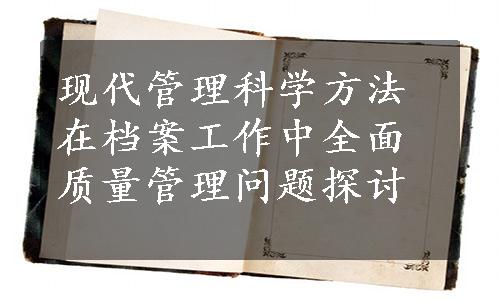 现代管理科学方法
在档案工作中全面
质量管理问题探讨